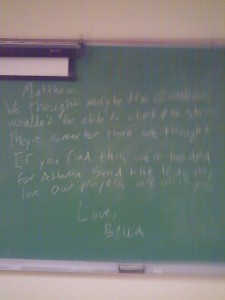 Matthew
We thought maybe the
wouldn't be able to climb the stairs
They're smarter than we thought
If you find this we're headed
for Atlanta Send the kids my
love Our prayers are with you
Love,
Bella